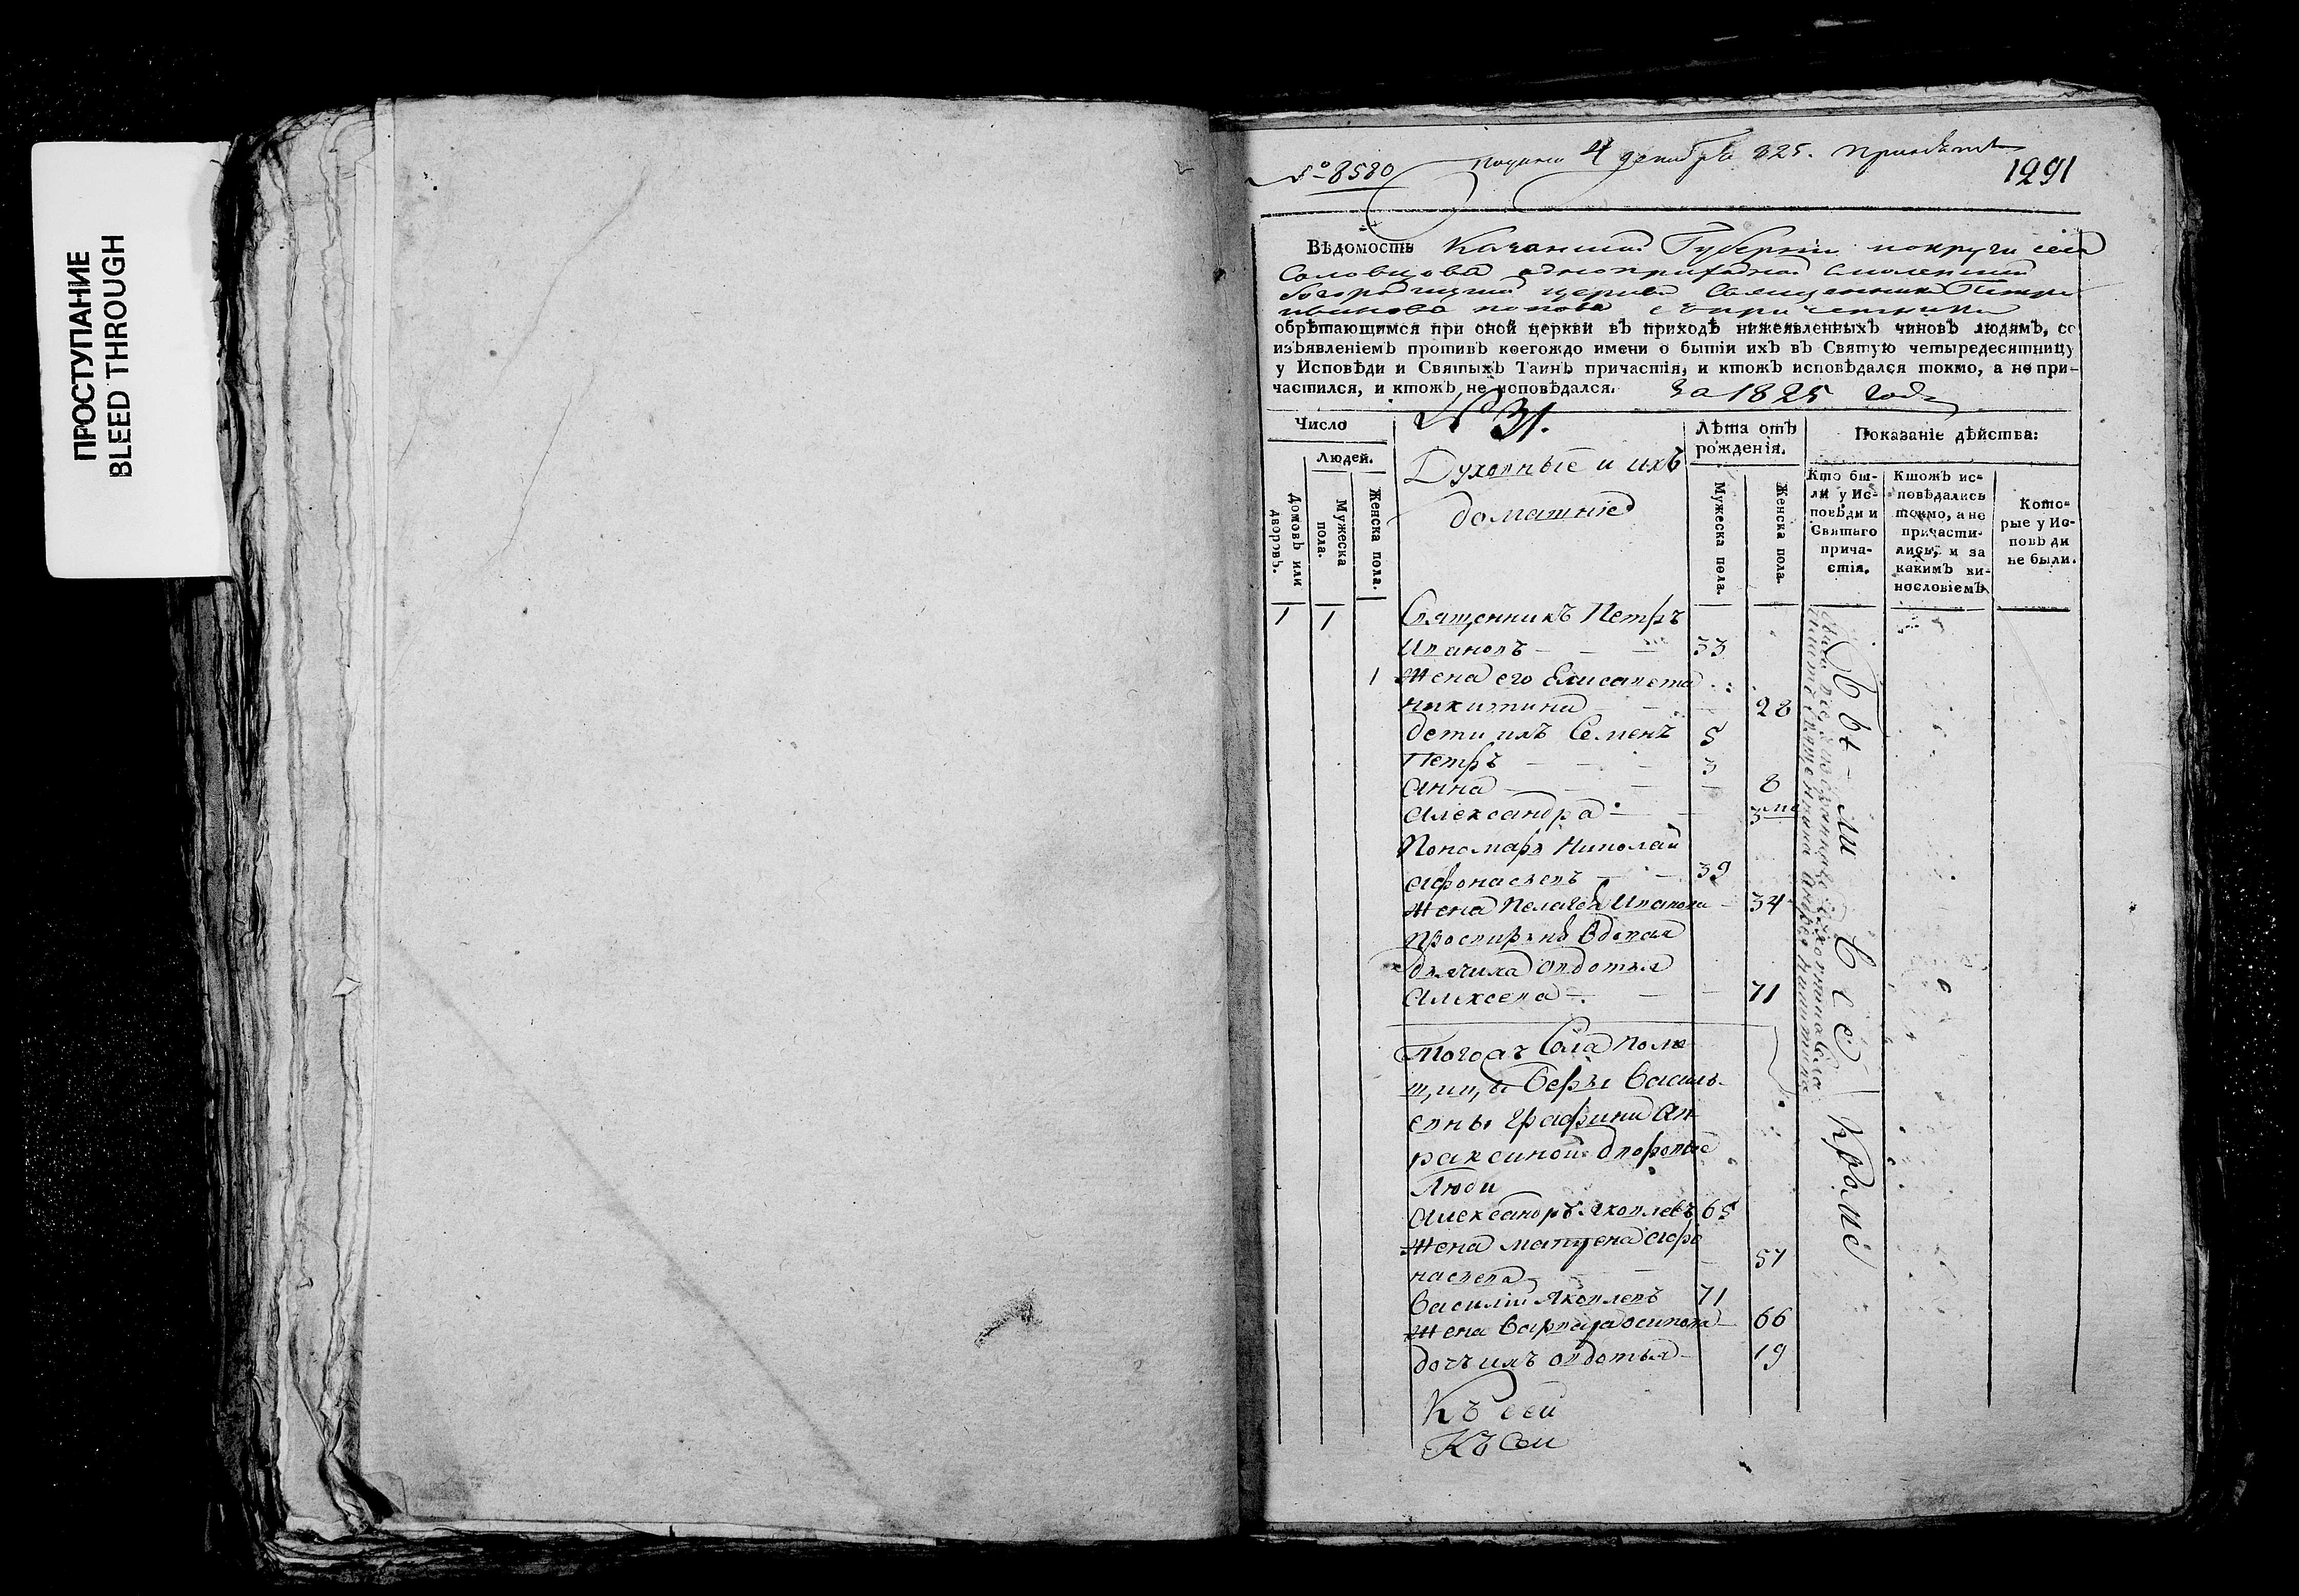 ПРОСТУПАНИЕ
BLEED THROUGH
№ 8580
4 декабря 825.
1291
Вѣдомость Казанской Губернїи округи села
Соловцова одноприходной Смоленской
Богородицкой церкви Священника Петра
Иванова Попова с причетники
обрѣтающимся при оной церкви въ приходѣ нижеявленныхъ чиновъ людямъ, со
изъявленїемъ противъ коегождо имени о бытїи ихъ въ Святую четыредесятницу
у Исповѣди и Святыхъ Таинъ причастїя, и ктожъ исповѣдался токмо, а не при-
частился, и ктожъ не исповѣдался. За 1825 годъ
№ 31.
Число
Людей.
Домовъ или дворовъ.
Мужеска пола.
Женска пола.
Духовные и ихъ
домашнїе
Лѣта отъ
рожденїя.
Мужеска пола.
Женска пола.
Показанїе дѣйства:
Кто бы-
ли у Ис-
повѣди и
Святаго
прича-
стїя.
Ктожъ ис-
повѣдались
токмо, а не
причасти-
лись, и за
какимъ ви-
нословїемъ
Кото-
рые у Ис-
повѣди
не были.
1 1 Священникъ Петръ
Ивановъ 33
1 Жена его Елисавета
Никитина 28
Дети ихъ Семенъ 5
Петръ 3
Анна 8
Александра 3
Пономарь Николай
Афонасьевъ 39
Жена Пелагея Иванова 34
Просвирня вдовая
дьячиха Овдотья
Алексева 71
Тогожъ Села поме
щицы Веры Василь
евны Графини Ап
раксиной дворовые
Люди
Александръ Яковлевъ 65
Жена Матрена Афо
насьева 57
Василїй Яковлевъ 71
Жена Варвара Осипова 66
Дочь ихъ Овдотья 19
Къ сей
Къ сей
Бы-ли все
кроме